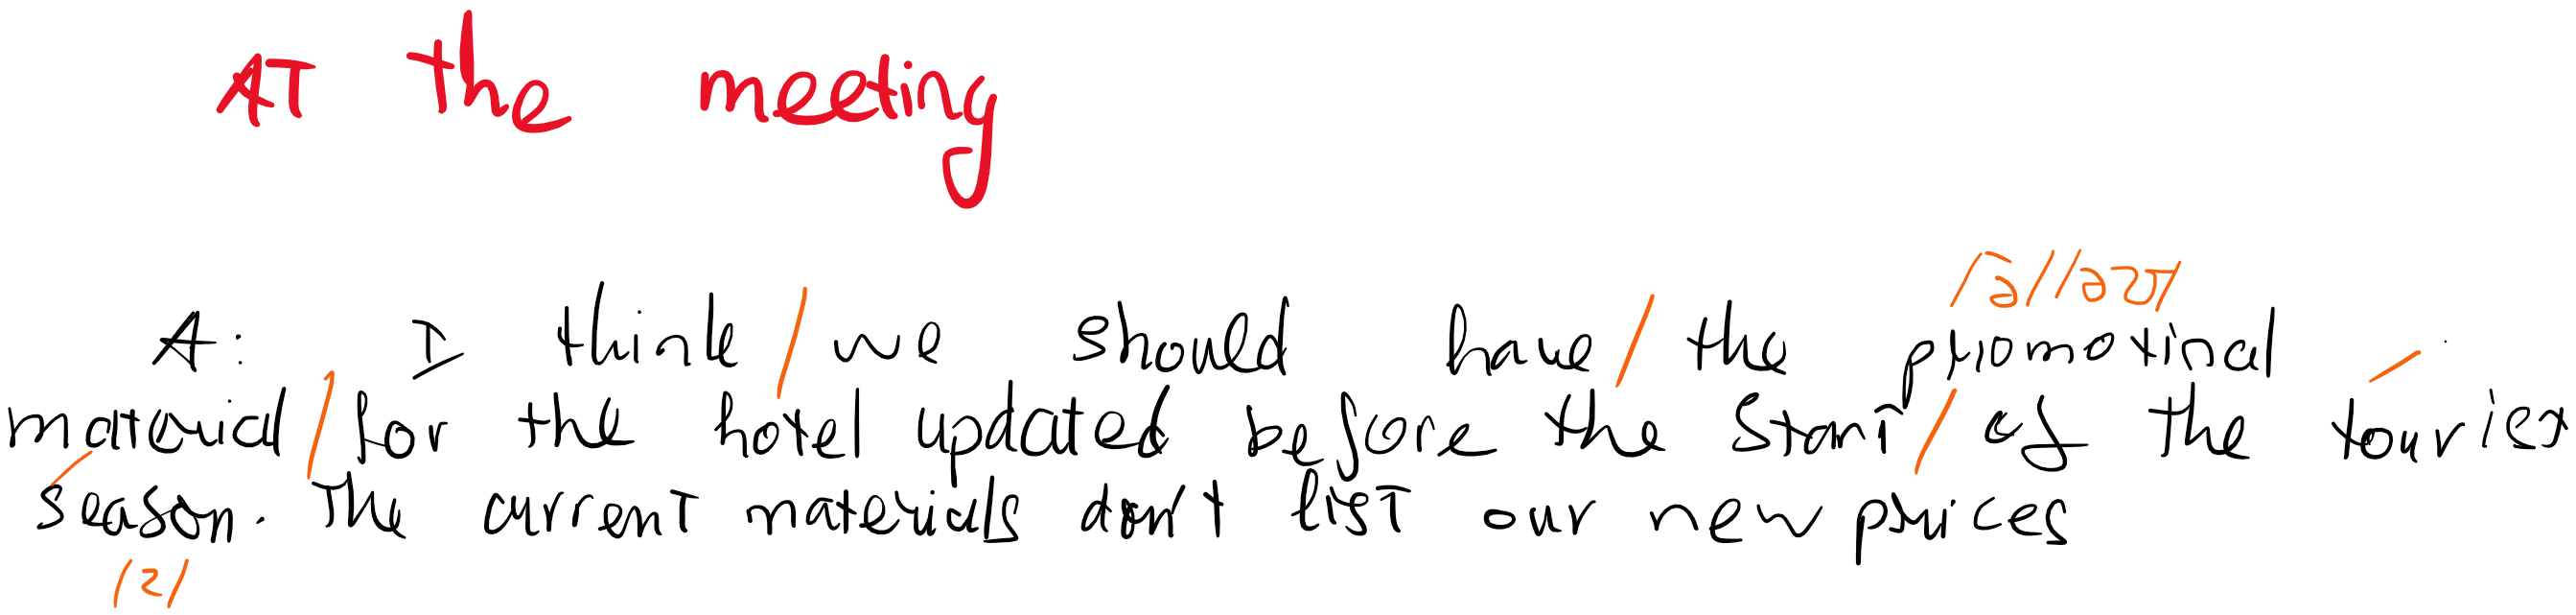 AT the meeting
/ə//əʊ/
A: I think / we should have / the promotinal
material / for the hotel updated before the start / of the tourist
season. The current materials don't list our new prices
/z/